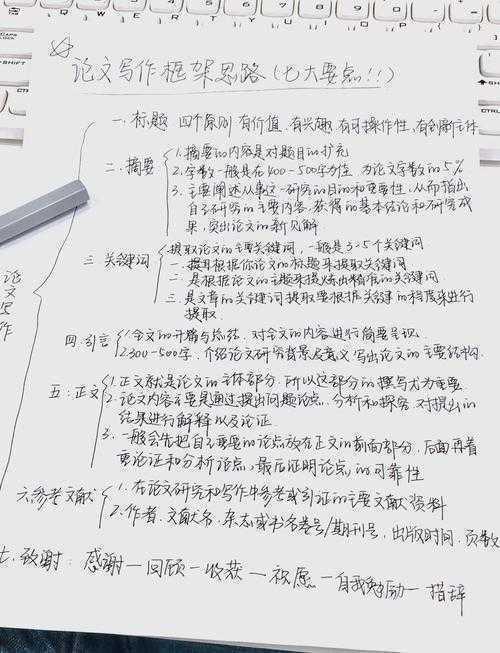 论文写作框架思路(七大要点!!)
论文写作
一. 标题 四个原则 有价值. 有兴趣 有可操作性, 有创新主体
二. 摘要
1. 摘要的内容是对题目的扩充
2. 字数一般是在400-500字为佳 为论文字数的5%
3. 主要阐述从事这一研究的目的和重要性, 从而指出
自己研究的主要内容. 获得的基本结论和研究成
果, 突出论文的新见解.
三 关键词
提取论文的主要关键词, 一般是3-5个关键词
一. 提取根据你论文的标题来提取关键词
二. 是根据论文的主题来提炼出精准的关键词
三. 是文章的关键词提取要根据关键的程度来进行
提取.
四. 引言
1. 全文的开篇与总结. 对全文的内容进行简要呈现.
2. 300-500字, 介绍论文研究背景及意义 写出论文的主要结构.
五: 正文
1. 正文就是论文的主体部分. 所以这部分的撰写尤为重要
2. 论文内容主要是通过提出问题论点, 分析和探容. 对提出的
结果进行解释以及论证.
3. 一般会先把自己重要的论点放在正文的前面部分, 后面再着
重论证和分析论点, 最后证明论点的可靠性
六. 参考文献
1. 在论文研究和写作中参考或引证的主要文献资料
2. 作者. 文献名. 杂志或书名卷号/期刊号, 出版时间. 页数
七. 致谢: 感谢一回顾一收获一祝愿一自我勉励一措辞